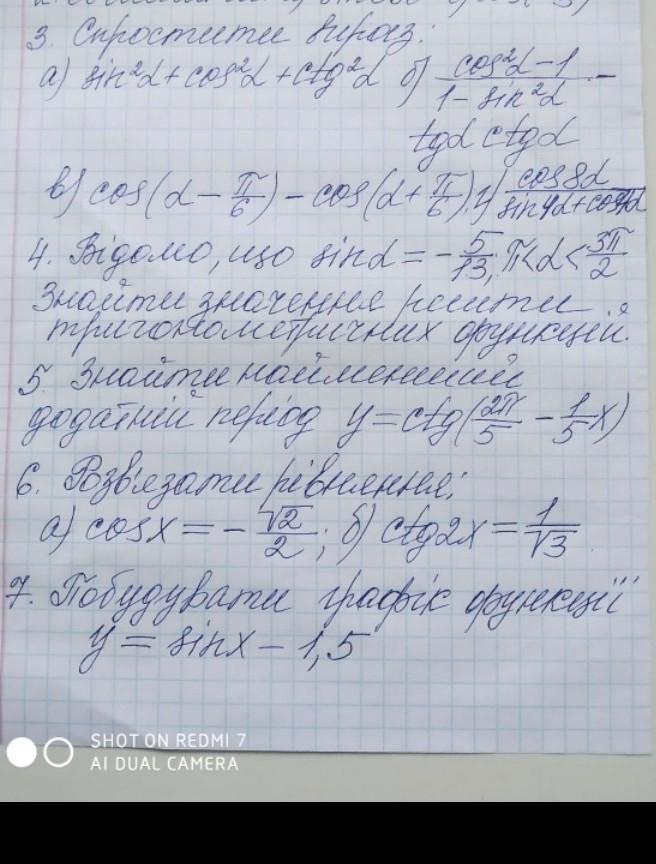 3. Спростити вираз:
а) sin²α + cos²α + ctg²α б) (cos²α − 1)/(1 − sin²α) −
tgα ctgα
в) cos(α − π/6) − cos(α + π/6) г) cos8α/(sin4α + cos4α)
4. Відомо, що sinα = −5/13, π<α<3π/2
Знайти значення решти
тригонометричних функцій.
5. Знайти найменший
додатній період y = ctg(2π/5 − 1/5 x)
6. Розв'язати рівняння:
а) cosx = −√2/2; б) ctg2x = 1/√3
7. Побудувати графік функції
y = sinx − 1,5
SHOT ON REDMI 7
AI DUAL CAMERA